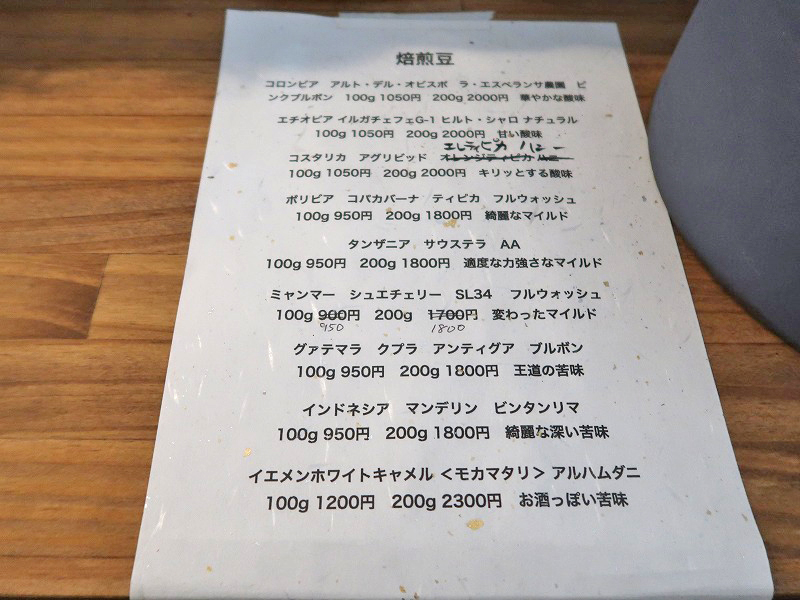 焙煎豆
コロンビア アルト・デル・オビスポ ラ・エスペランサ農園 ピ
ンクブルボン 100g 1050円 200g 2000円 華やかな酸味
エチオピア イルガチェフェG-1 ヒルト・シャロ ナチュラル
100g 1050円 200g 2000円 甘い酸味
ティピカ ハニー
コスタリカ アグリビッド オレンジティピカ ハニー
100g 1050円 200g 2000円 キリッとする酸味
ボリビア コパカバーナ ティピカ フルウォッシュ
100g 950円 200g 1800円 綺麗なマイルド
タンザニア サウステラ AA
100g 950円 200g 1800円 適度な力強さなマイルド
ミャンマー シュエチェリー SL34 フルウォッシュ
100g 900円 200g 1700円 変わったマイルド
950 1800
グァテマラ クプラ アンティグア ブルボン
100g 950円 200g 1800円 王道の苦味
インドネシア マンデリン ビンタンリマ
100g 950円 200g 1800円 綺麗な深い苦味
イエメンホワイトキャメル <モカマタリ> アルハムダニ
100g 1200円 200g 2300円 お酒っぽい苦味